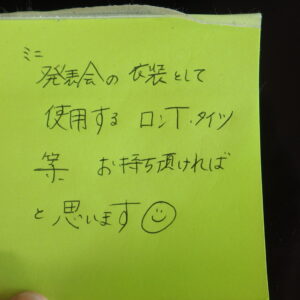 ミニ
発表会の衣装として
使用する ロンT・タイツ
等 お持ち頂ければ
と思います